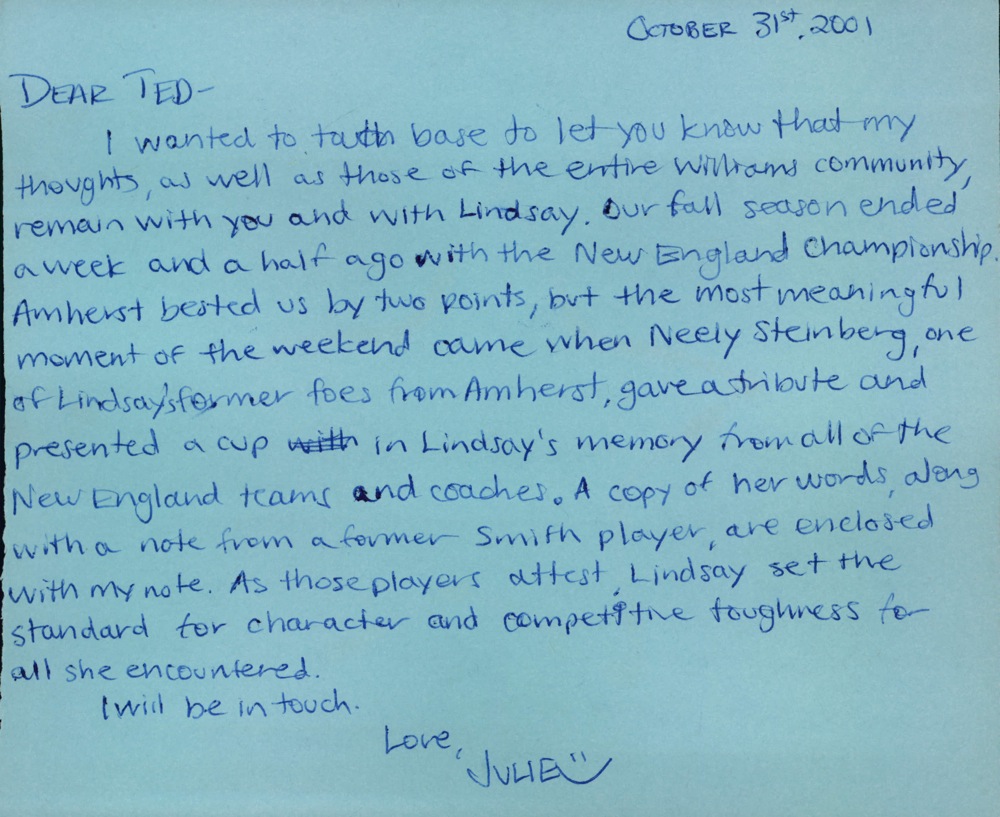 OCTOBER 31st, 2001
DEAR TED-
I wanted to touch base to let you know that my
thoughts, as well as those of the entire Williams community,
remain with you and with Lindsay. Our fall season ended
a week and a half ago with the New England Championship.
Amherst bested us by two points, but the most meaningful
moment of the weekend came when Neely Steinberg, one
of Lindsay's former foes from Amherst, gave a tribute and
presented a cup with in Lindsay's memory from all of the
New England teams and coaches. A copy of her words, along
with a note from a former Smith player, are enclosed
with my note. As those players attest, Lindsay set the
standard for character and competitive toughness for
all she encountered.
I will be in touch.
Love,
JULIE